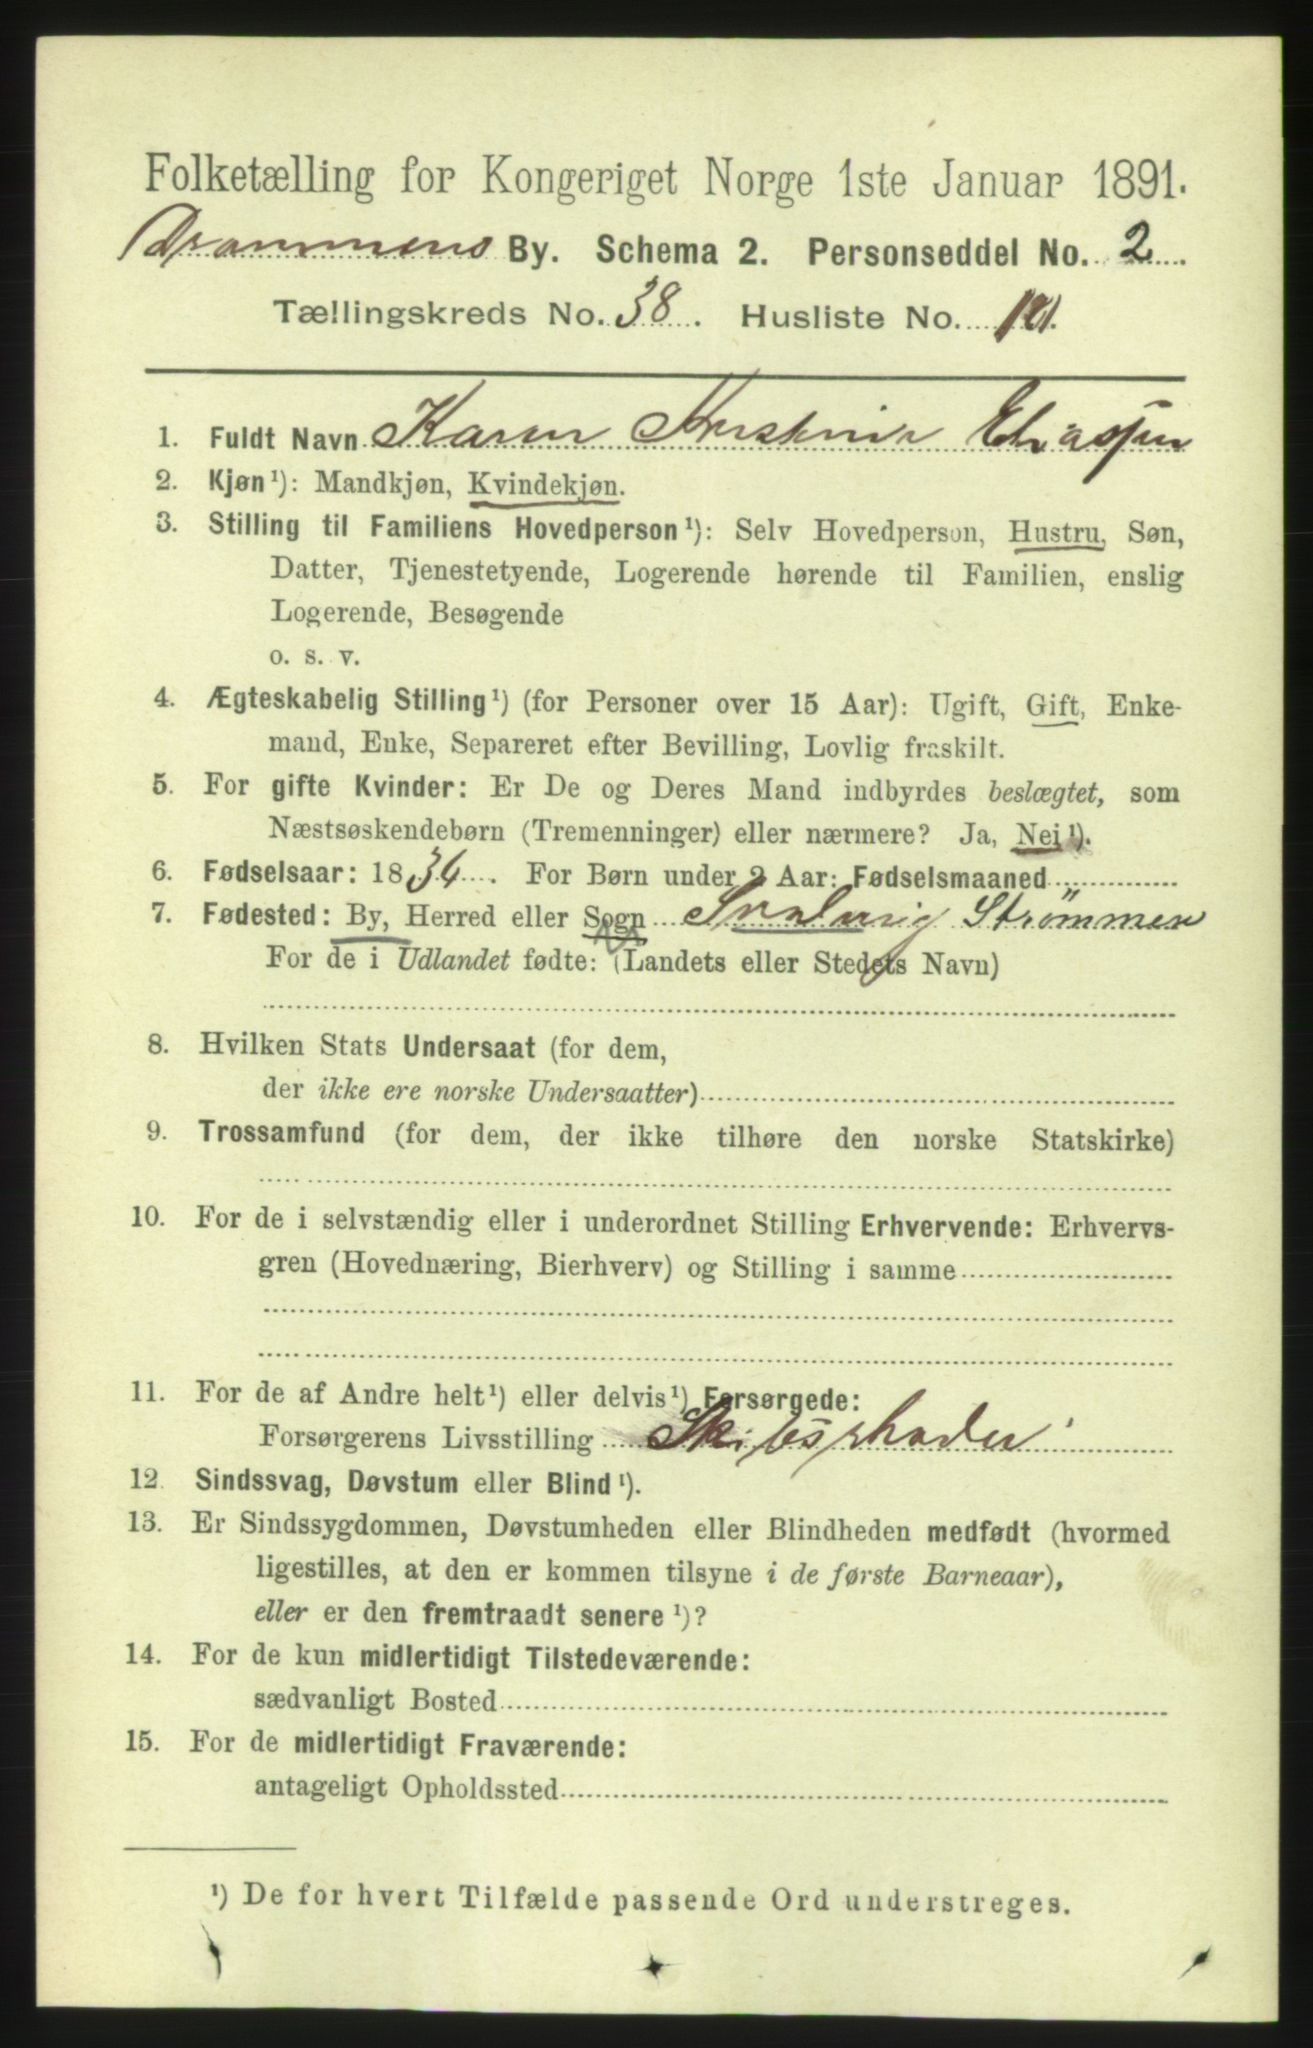 Folketælling for Kongeriget Norge 1ste Januar 1891.
Drammens By. Schema 2. Personseddel No. 2
Tællingskreds No. 38. Husliste No. 121.
1. Fuldt Navn Karen Kristine Eliassen
2. Kjøn¹): Mandkjøn, Kvindekjøn.
3. Stilling til Familiens Hovedperson¹): Selv Hovedperson, Hustru, Søn,
Datter, Tjenestetyende, Logerende hørende til Familien, enslig
Logerende, Besøgende
o. s. v.
4. Ægteskabelig Stilling¹) (for Personer over 15 Aar): Ugift, Gift, Enke-
mand, Enke, Separeret efter Bevilling, Lovlig fraskilt.
5. For gifte Kvinder: Er De og Deres Mand indbyrdes beslægtet, som
Næstsøskendebørn (Tremenninger) eller nærmere? Ja, Nei¹).
6. Fødselsaar: 1834. For Børn under 2 Aar: Fødselsmaaned
7. Fødested: By, Herred eller Sogn Svelvig Strømmen
For de i Udlandet fødte: (Landets eller Stedets Navn)
8. Hvilken Stats Undersaat (for dem,
der ikke ere norske Undersaatter)
9. Trossamfund (for dem, der ikke tilhøre den norske Statskirke)
10. For de i selvstændig eller i underordnet Stilling Erhvervende: Erhvervs-
gren (Hovednæring, Bierhverv) og Stilling i samme
11. For de af Andre helt¹) eller delvis¹) Forsørgede:
Forsørgerens Livsstilling Skibsrheder
12. Sindssvag, Døvstum eller Blind¹).
13. Er Sindssygdommen, Døvstumheden eller Blindheden medfødt (hvormed
ligestilles, at den er kommen tilsyne i de første Barneaar),
eller er den fremtraadt senere¹)?
14. For de kun midlertidigt Tilstedeværende:
sædvanligt Bosted
15. For de midlertidigt Fraværende:
antageligt Opholdssted
¹) De for hvert Tilfælde passende Ord understreges.